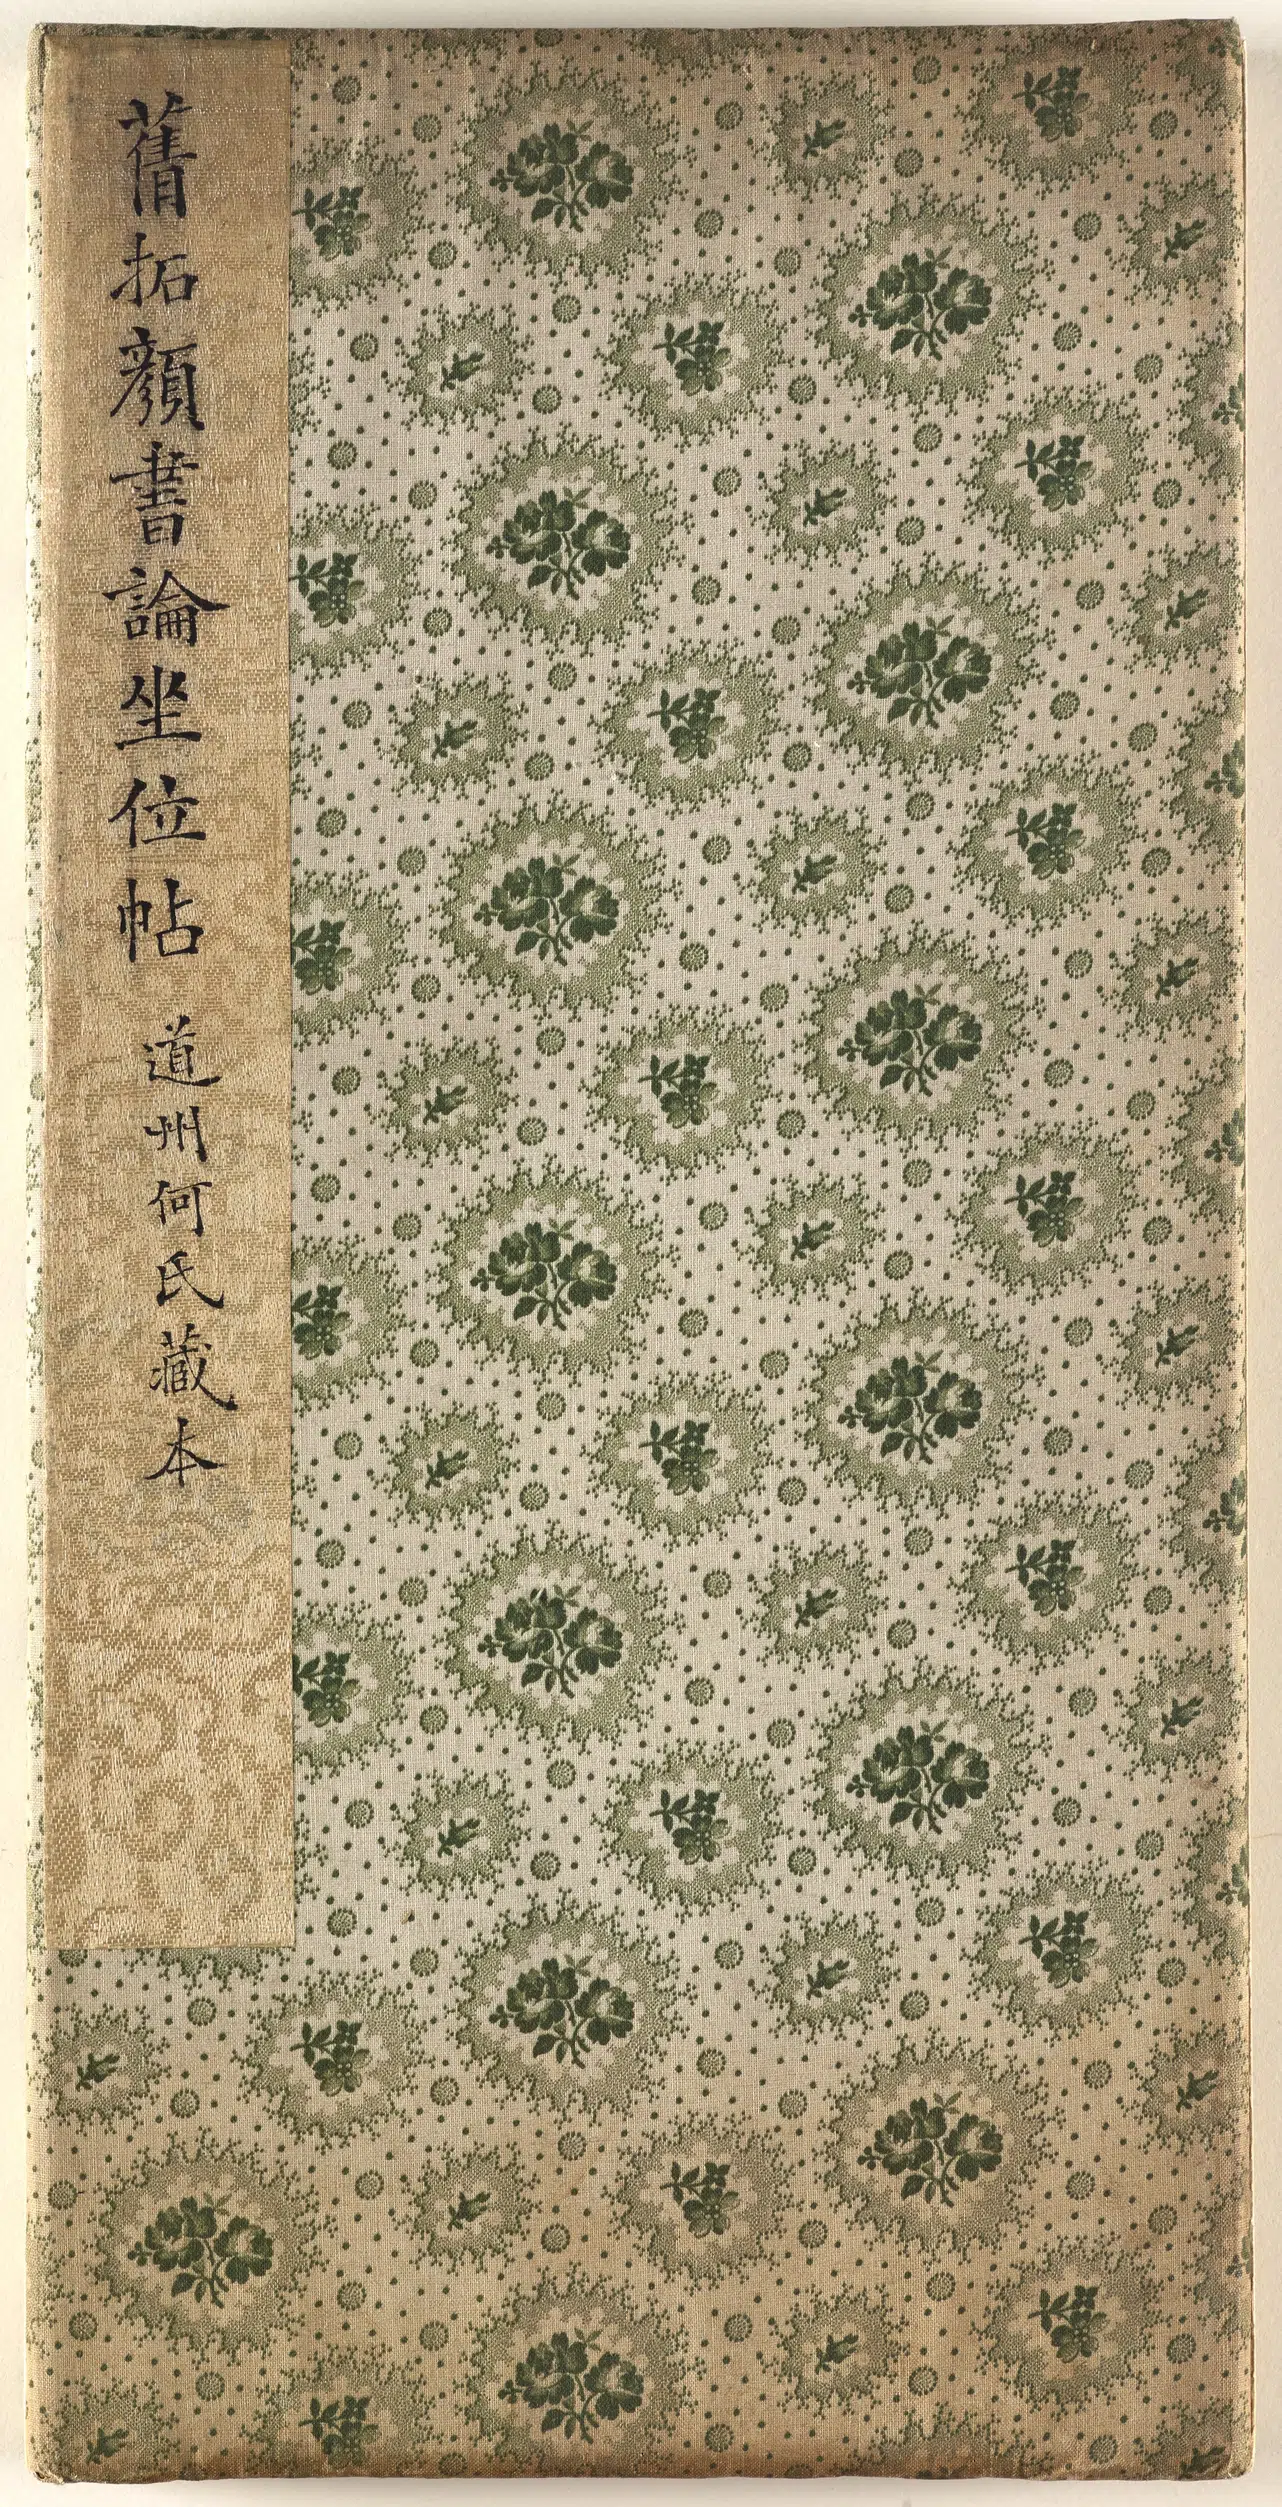 舊拓顏書論坐位帖 道州何氏藏本